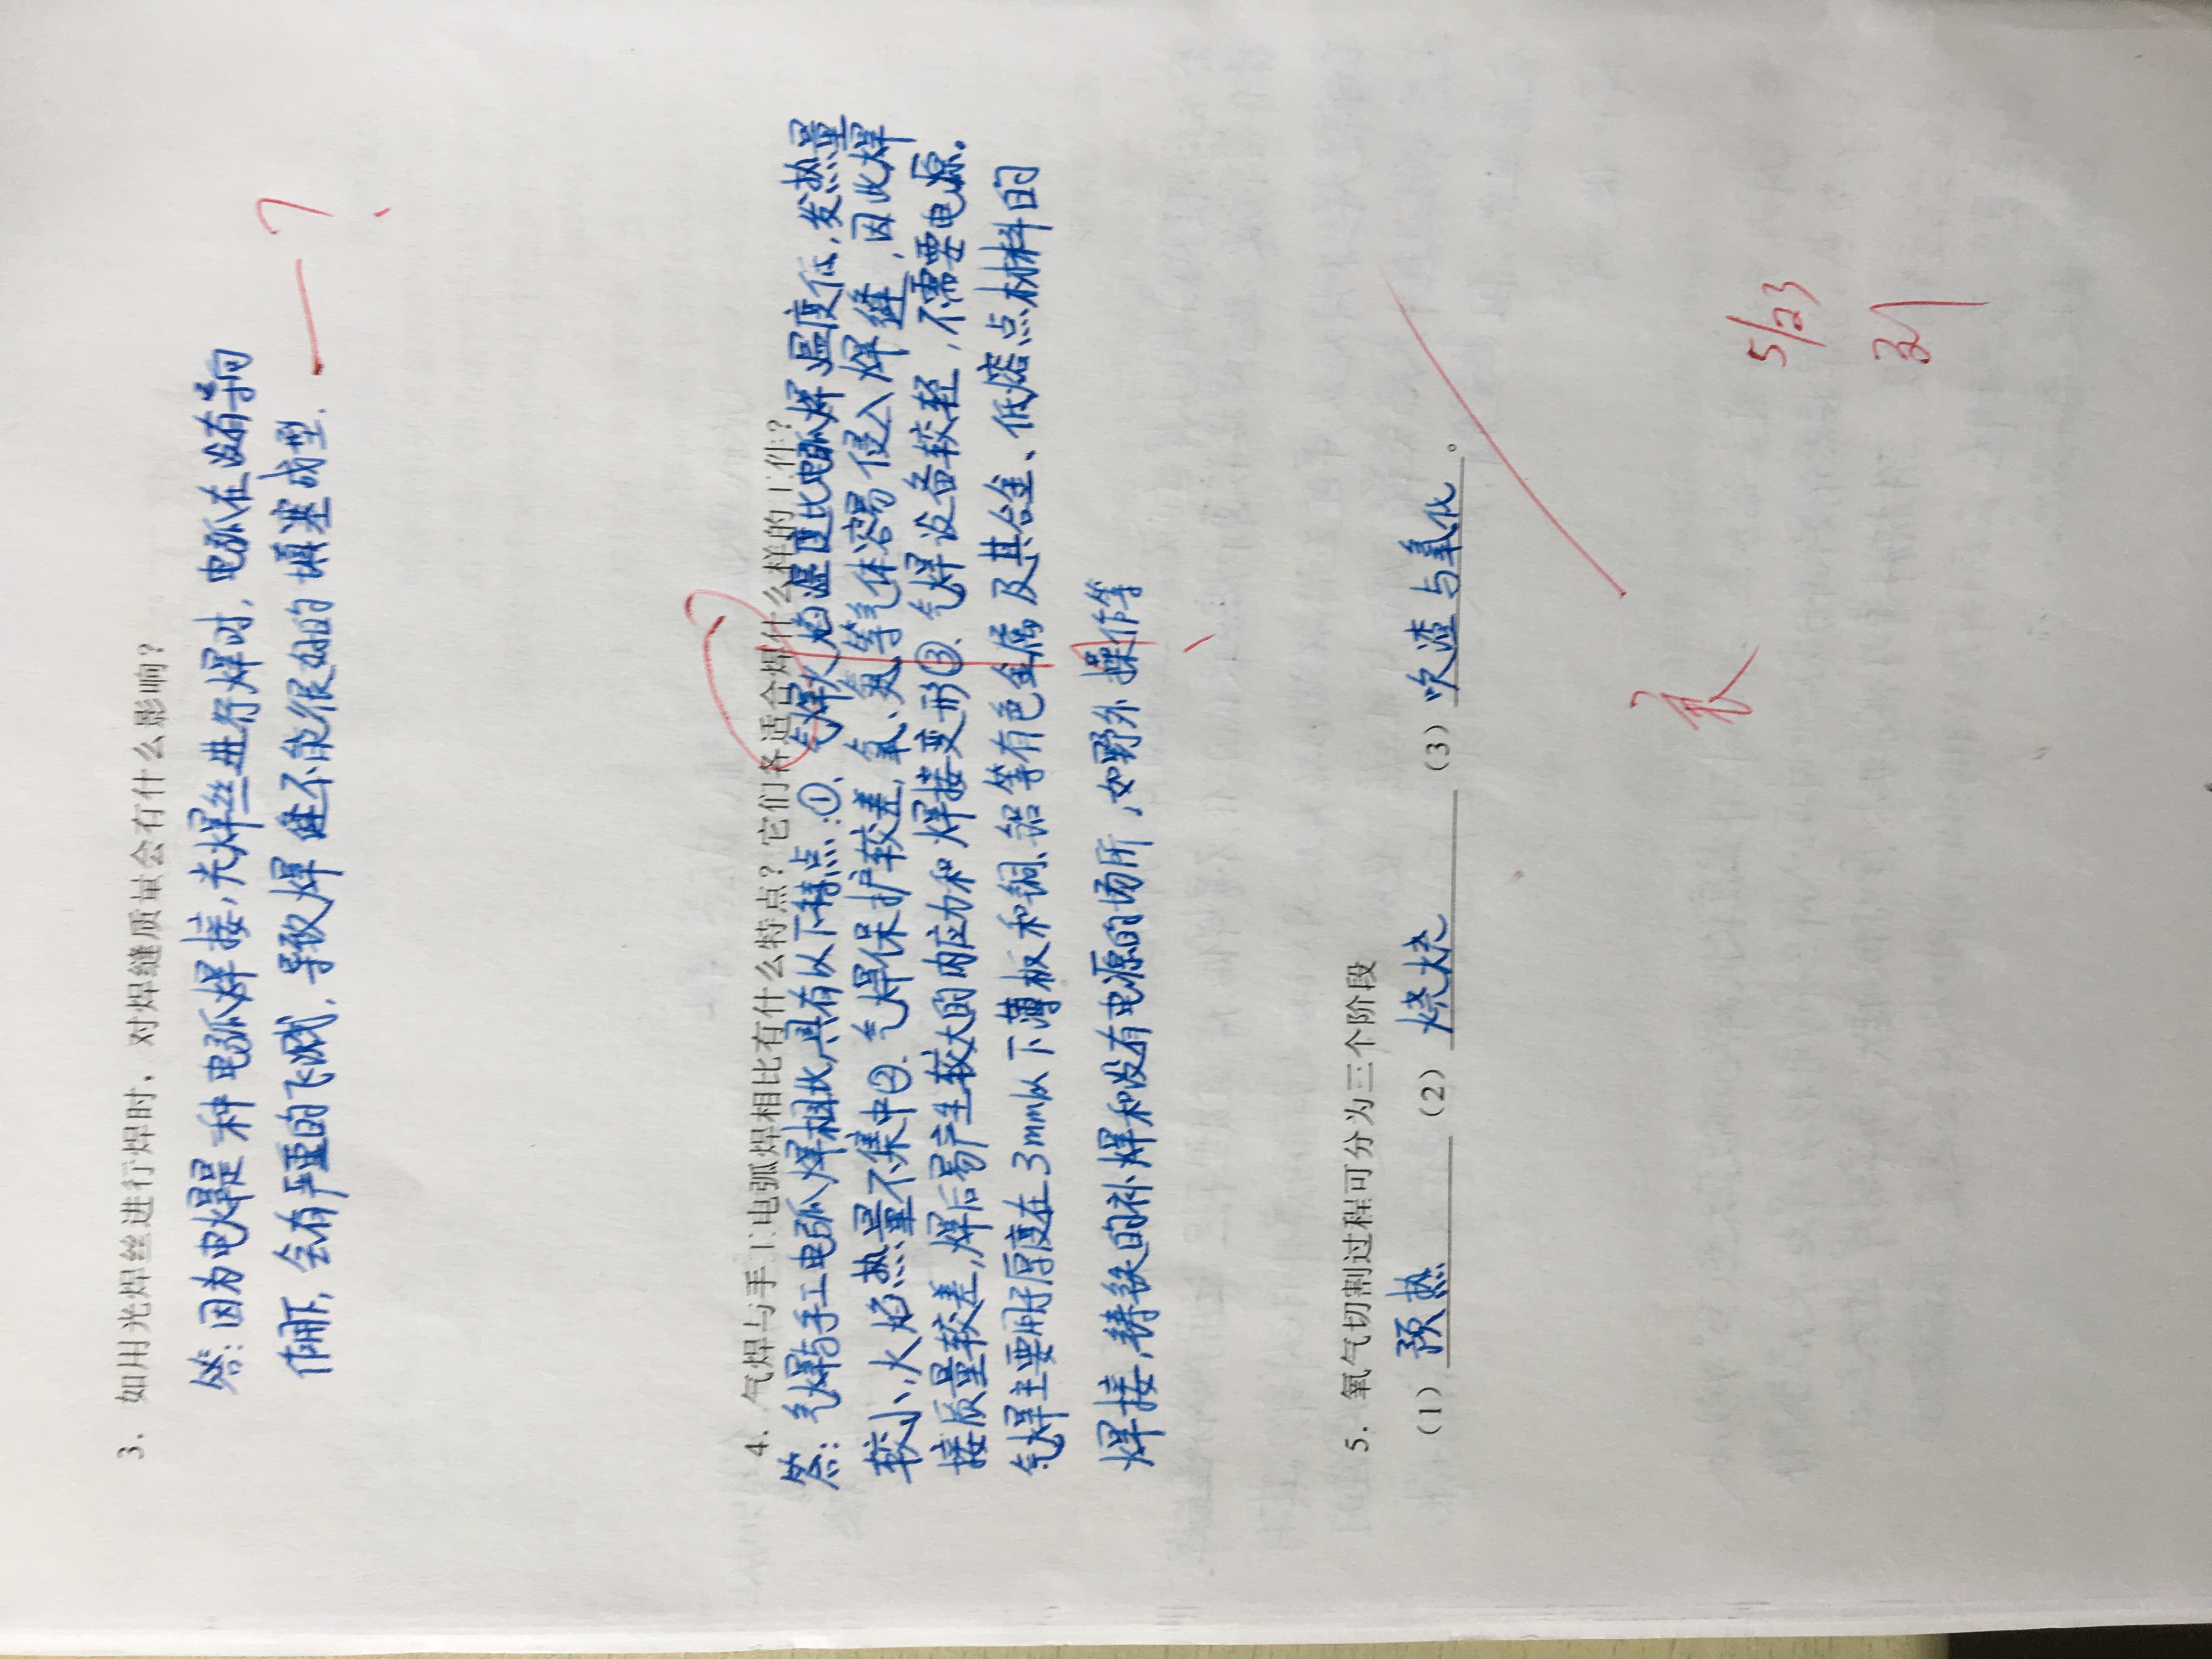 3. 如用光焊丝进行焊时，对焊缝质量会有什么影响？
答：因为电焊是种电弧焊接，光焊丝进行焊时，电弧在没有药向
作用下，会有严重的飞溅，导致焊缝不能很好的填塞成型．
4. 气焊与手工电弧焊相比有什么特点？它们各适合焊什么样的工件？
答：气焊与手工电弧焊相比，具有以下特点：①、气焊火焰温度比电弧焊温度低，发热量
较小，火焰热量不集中②．气焊保护较差，氧、氮等气体容易侵入焊缝，因此焊
接质量较差，焊后易产生较大的内应力和焊接变形③、气焊设备较轻，不需要电源。
气焊主要用于厚度在3mm以下薄板和铜、铝等有色金属及其合金、低熔点材料的
焊接，铸铁的补焊和没有电源的场所，如野外操作等
5. 氧气切割过程可分为三个阶段
（1）预热（2）燃烧（3）吹渣与氧化。
5/23